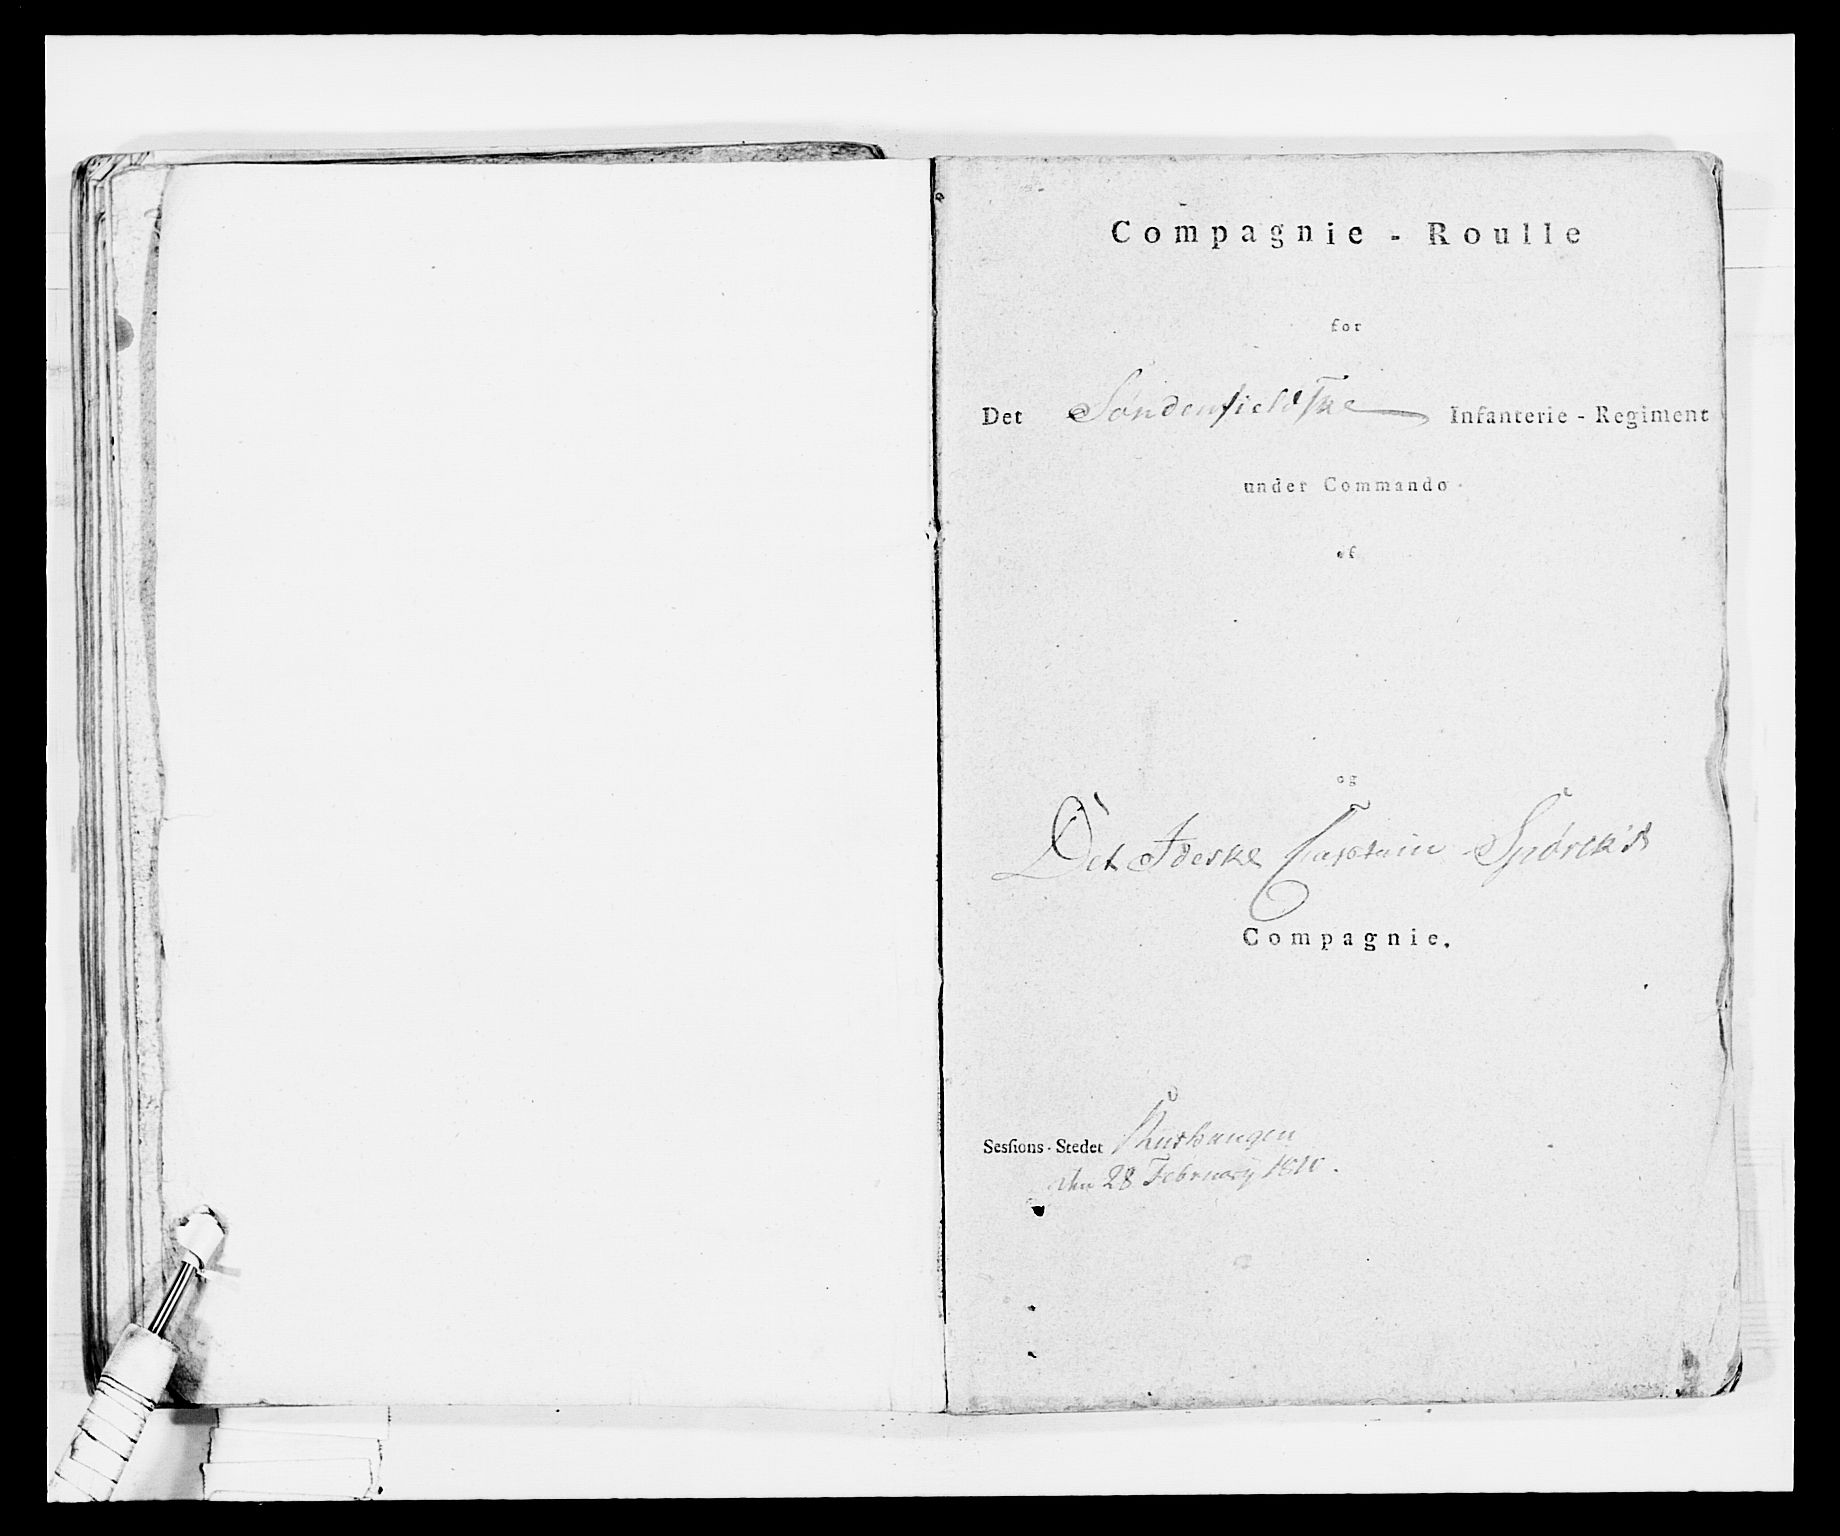 Compagnie - Roulle
for
Det Søndenfieldske Infanterie - Regiment
under Commando
af
og
Det Ideske Captain Spørck's
Compagnie.
Sessions-Stedet
den 28 February 1810.